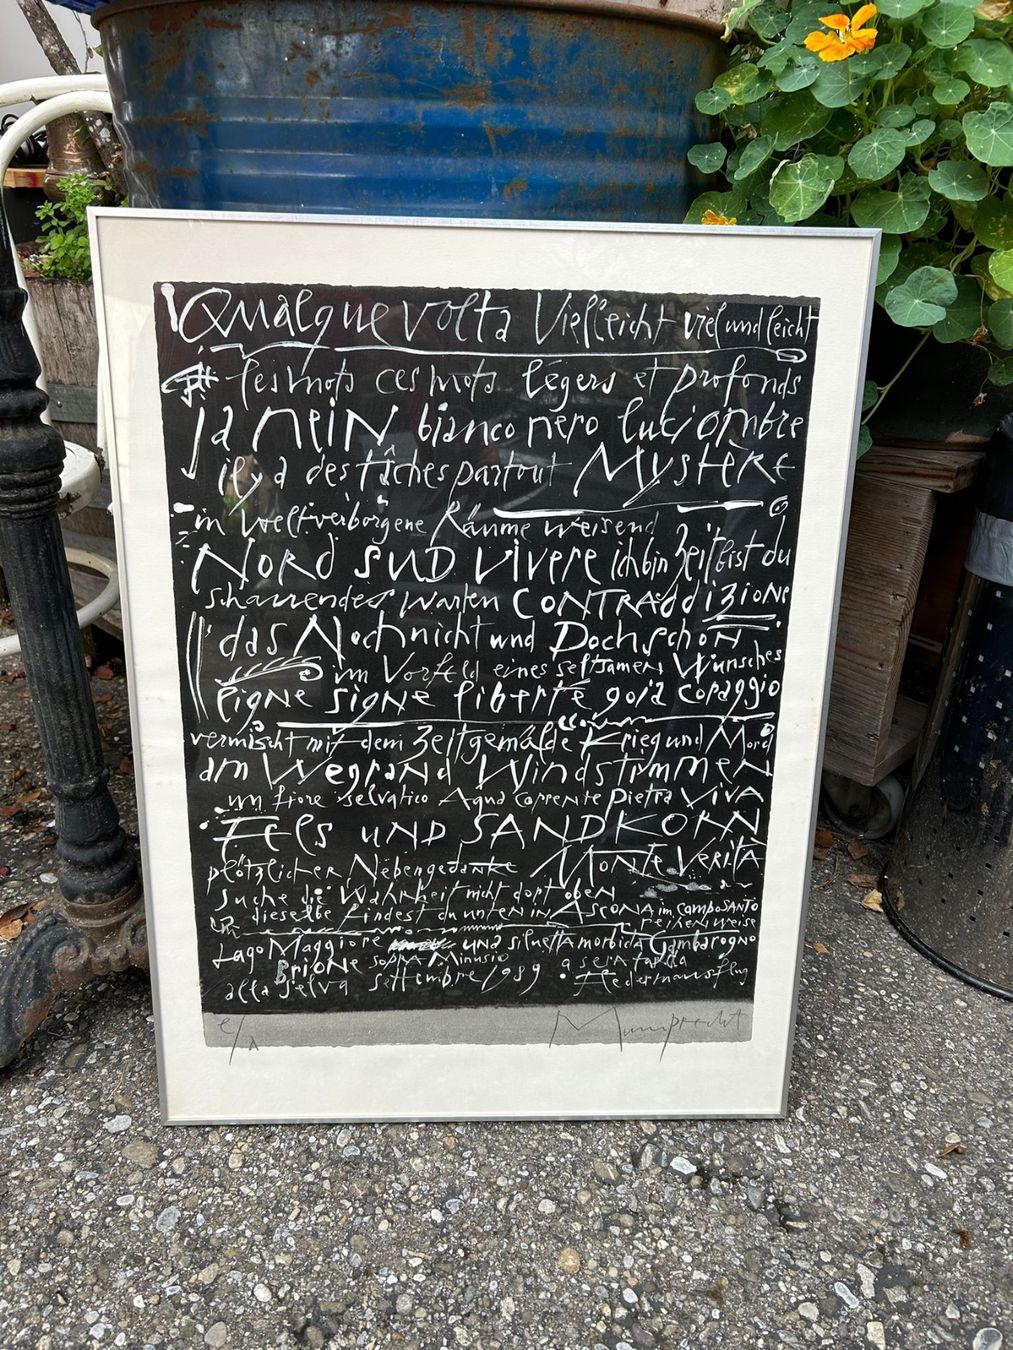 Qualque volta Vielleicht viel und leicht
les mots ces mots légers et profonds
ja nein bianco nero luci ombre
il y a des tâches partout Mystère
in Weltverborgene Räume weisend
Nord sud vivere ich bin Zeit bist du
warten contraddizione
das Noch nicht und Doch schon
im Vorfeld eines seltsamen Wunsches
ligne signe liberté gioia coraggio
vermischt mit dem Zeitgemälde Krieg und Mord
am Wegrand Windstimmen
un fiore selvatico Aqua corrente pietra viva
Fels und Sandkorn
plötzlicher Nebengedanke Monte Verità
suche die Wahrheit nicht dort oben
dieselbe findest du unten in Ascona im camposanto
reihenweise
Lago Maggiore und siluetta morbida Gambarogno
Brione sopra Minusio a sera tarda
alla selva settembre 1989 Fledermausflug
e/A Mumprecht